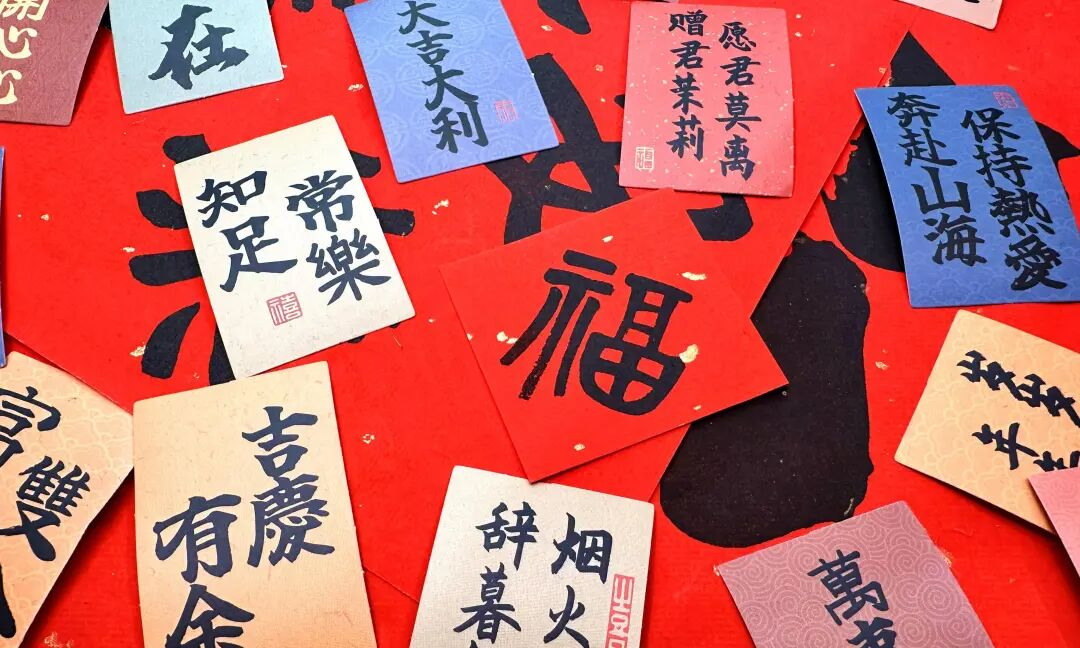 開心
在
大吉大利
愿君莫离
赠君茉莉
保持熱愛
奔赴山海
常樂
知足
禧
福
岁岁
年年
雙
吉慶
有余
烟火
辞暮
萬